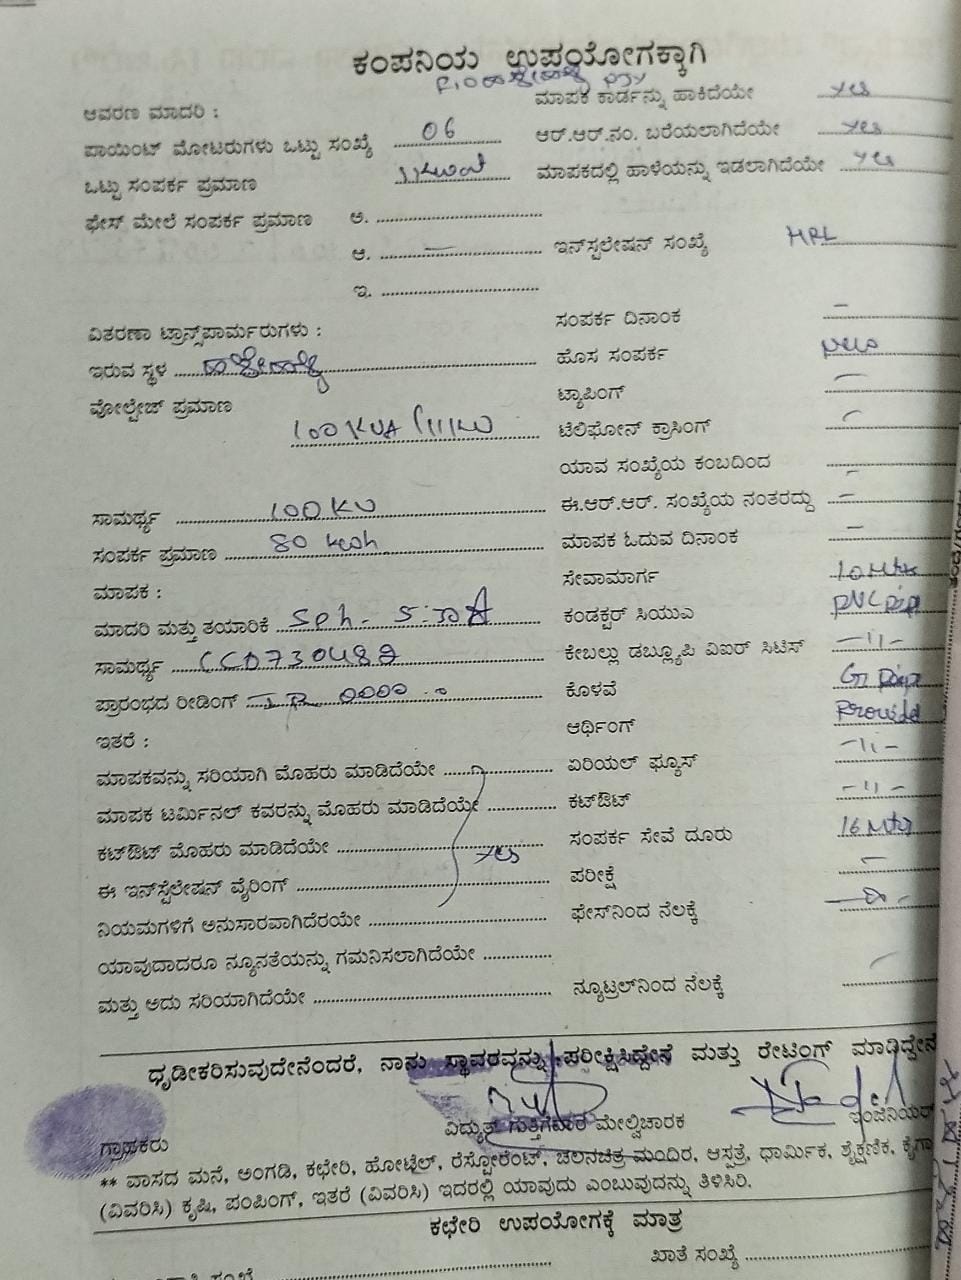 ಕಂಪನಿಯ ಉಪಯೋಗಕ್ಕಾಗಿ
ಆವರಣ ಮಾದರಿ :
ಮಾಪಕ ಕಾರ್ಡನ್ನು ಹಾಕಿದೆಯೇ Yes
ಪಾಯಿಂಟ್ ಮೋಟರುಗಳು ಒಟ್ಟು ಸಂಖ್ಯೆ 06
ಆರ್.ಆರ್.ನಂ. ಬರೆಯಲಾಗಿದೆಯೇ Yes
ಒಟ್ಟು ಸಂಪರ್ಕ ಪ್ರಮಾಣ
ಮಾಪಕದಲ್ಲಿ ಹಾಳೆಯನ್ನು ಇಡಲಾಗಿದೆಯೇ Yes
ಫೇಸ್ ಮೇಲೆ ಸಂಪರ್ಕ ಪ್ರಮಾಣ ಅ. ..........
ಆ. .......... ಇನ್‌ಸ್ಟಲೇಷನ್ ಸಂಖ್ಯೆ HRL
ಇ. ..........
ವಿತರಣಾ ಟ್ರಾನ್ಸ್‌ಪಾರ್ಮರುಗಳು :
ಸಂಪರ್ಕ ದಿನಾಂಕ –
ಇರುವ ಸ್ಥಳ
ಹೊಸ ಸಂಪರ್ಕ New
ವೋಲ್ಟೇಜ್ ಪ್ರಮಾಣ 100 KVA /11 KV
ಟ್ಯಾಪಿಂಗ್ –
ಟೆಲಿಫೋನ್ ಕ್ರಾಸಿಂಗ್ –
ಯಾವ ಸಂಖ್ಯೆಯ ಕಂಬದಿಂದ –
ಸಾಮರ್ಥ್ಯ 100 KV
ಈ.ಆರ್.ಆರ್. ಸಂಖ್ಯೆಯ ನಂತರದ್ದು –
ಸಂಪರ್ಕ ಪ್ರಮಾಣ 80 kwh
ಮಾಪಕ ಓದುವ ದಿನಾಂಕ –
ಮಾಪಕ :
ಸೇವಾಮಾರ್ಗ 10 Mtr
ಮಾದರಿ ಮತ್ತು ತಯಾರಿಕೆ 5-30A
ಕಂಡಕ್ಟರ್ ಸಿಯುಎ PVC pipe
ಸಾಮರ್ಥ್ಯ
ಕೇಬಲ್ಲು ಡಬ್ಲ್ಯೂಪಿ ವಿಐರ್ ಸಿಟಿಸ್ –11–
ಪ್ರಾರಂಭದ ರೀಡಿಂಗ್ IR 0000.0
ಕೊಳವೆ GI pipe
ಇತರೆ :
ಆರ್ಥಿಂಗ್ Provided
ಮಾಪಕವನ್ನು ಸರಿಯಾಗಿ ಮೊಹರು ಮಾಡಿದೆಯೇ ..........
ಏರಿಯಲ್ ಫ್ಯೂಸ್ –11–
ಮಾಪಕ ಟರ್ಮಿನಲ್ ಕವರನ್ನು ಮೊಹರು ಮಾಡಿದೆಯೇ ..........
ಕಟ್‌ಔಟ್ –11–
ಕಟ್‌ಔಟ್ ಮೊಹರು ಮಾಡಿದೆಯೇ .......... Yes
ಸಂಪರ್ಕ ಸೇವೆ ದೂರು 16 Mtr
ಈ ಇನ್‌ಸ್ಟೆಲೇಷನ್ ವೈರಿಂಗ್ ..........
ಪರೀಕ್ಷೆ –
ನಿಯಮಗಳಿಗೆ ಅನುಸಾರವಾಗಿದೆರಯೇ ..........
ಫೇಸ್‌ನಿಂದ ನೆಲಕ್ಕೆ
ಯಾವುದಾದರೂ ನ್ಯೂನತೆಯನ್ನು ಗಮನಿಸಲಾಗಿದೆಯೇ ..........
ಮತ್ತು ಅದು ಸರಿಯಾಗಿದೆಯೇ ..........
ನ್ಯೂಟ್ರಲ್‌ನಿಂದ ನೆಲಕ್ಕೆ
ಧೃಡೀಕರಿಸುವುದೇನೆಂದರೆ, ನಾನು ಸ್ಥಾವರವನ್ನು ಪರೀಕ್ಷಿಸಿದ್ದೇನೆ ಮತ್ತು ರೇಟಿಂಗ್ ಮಾಡಿದ್ದೇನೆ
ಗ್ರಾಹಕರು ವಿದ್ಯುತ್ ಗುತ್ತಿಗೆದಾರ ಮೇಲ್ವಿಚಾರಕ ಇಂಜಿನಿಯರ್
** ವಾಸದ ಮನೆ, ಅಂಗಡಿ, ಕಛೇರಿ, ಹೋಟೆಲ್, ರೆಸ್ಟೋರೆಂಟ್, ಚಲನಚಿತ್ರ ಮಂದಿರ, ಆಸ್ಪತ್ರೆ, ಧಾರ್ಮಿಕ, ಶೈಕ್ಷಣಿಕ,
(ವಿವರಿಸಿ) ಕೃಷಿ, ಪಂಪಿಂಗ್, ಇತರೆ (ವಿವರಿಸಿ) ಇದರಲ್ಲಿ ಯಾವುದು ಎಂಬುವುದನ್ನು ತಿಳಿಸಿರಿ.
ಕಛೇರಿ ಉಪಯೋಗಕ್ಕೆ ಮಾತ್ರ
ಖಾತೆ ಸಂಖ್ಯೆ ..........